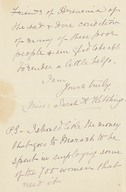 Friends of Armenia of
the sad & dire condition
of many of these poor
people & am glad to be able
to render a little help.
I am
Yours truly
Miss. Sarah H.
P.S. I should like the money
that goes to Marash to be
spent in employing some
of the 700 women that
need it